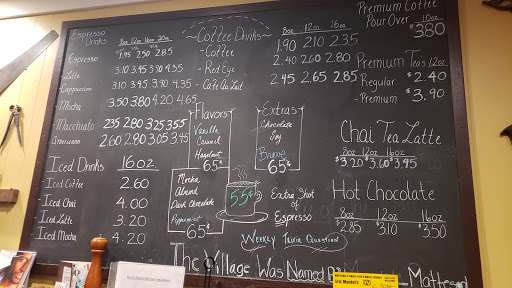 Espresso Drinks 8oz 12oz 16oz 20oz
- Espresso 1.95 2.50 2.85
- Latte 3.10 3.45 3.90 4.35
- Cappuccino 3.10 3.45 3.90 4.35
- Mocha 3.50 3.80 4.20 4.65
Macchiato 2.35 2.80 3.25 3.55
- Americano 2.60 2.80 3.05 3.45
Iced Drinks 16oz.
- Iced Coffee 2.60
- Iced Chai 4.00
- Iced Latte 3.20
- Iced Mocha 4.20
~Coffee Drinks~ 8oz 12oz 16oz
- Coffee 1.90 2.10 2.35
- Red Eye 2.40 2.60 2.80
- Cafe Au Lait 2.45 2.65 2.85
Flavors
Vanilla
Caramel
Hazelnut
65¢
Mocha
Almond
Dark Chocolate
Peppermint
65¢
Extras
Chocolate
Soy
Breve
65¢
55¢
Extra Shot of Espresso
Weekly Trivia Question!
The Village Was Named
Premium Coffee
Pour Over 10oz $3.80
Premium Teas 12oz
- Regular $2.40
- Premium $3.90
Chai Tea Latte
8oz 12oz 16oz
$3.20 $3.60 $3.95
Hot Chocolate
8oz 12oz 16oz
$2.85 $3.10 $3.50